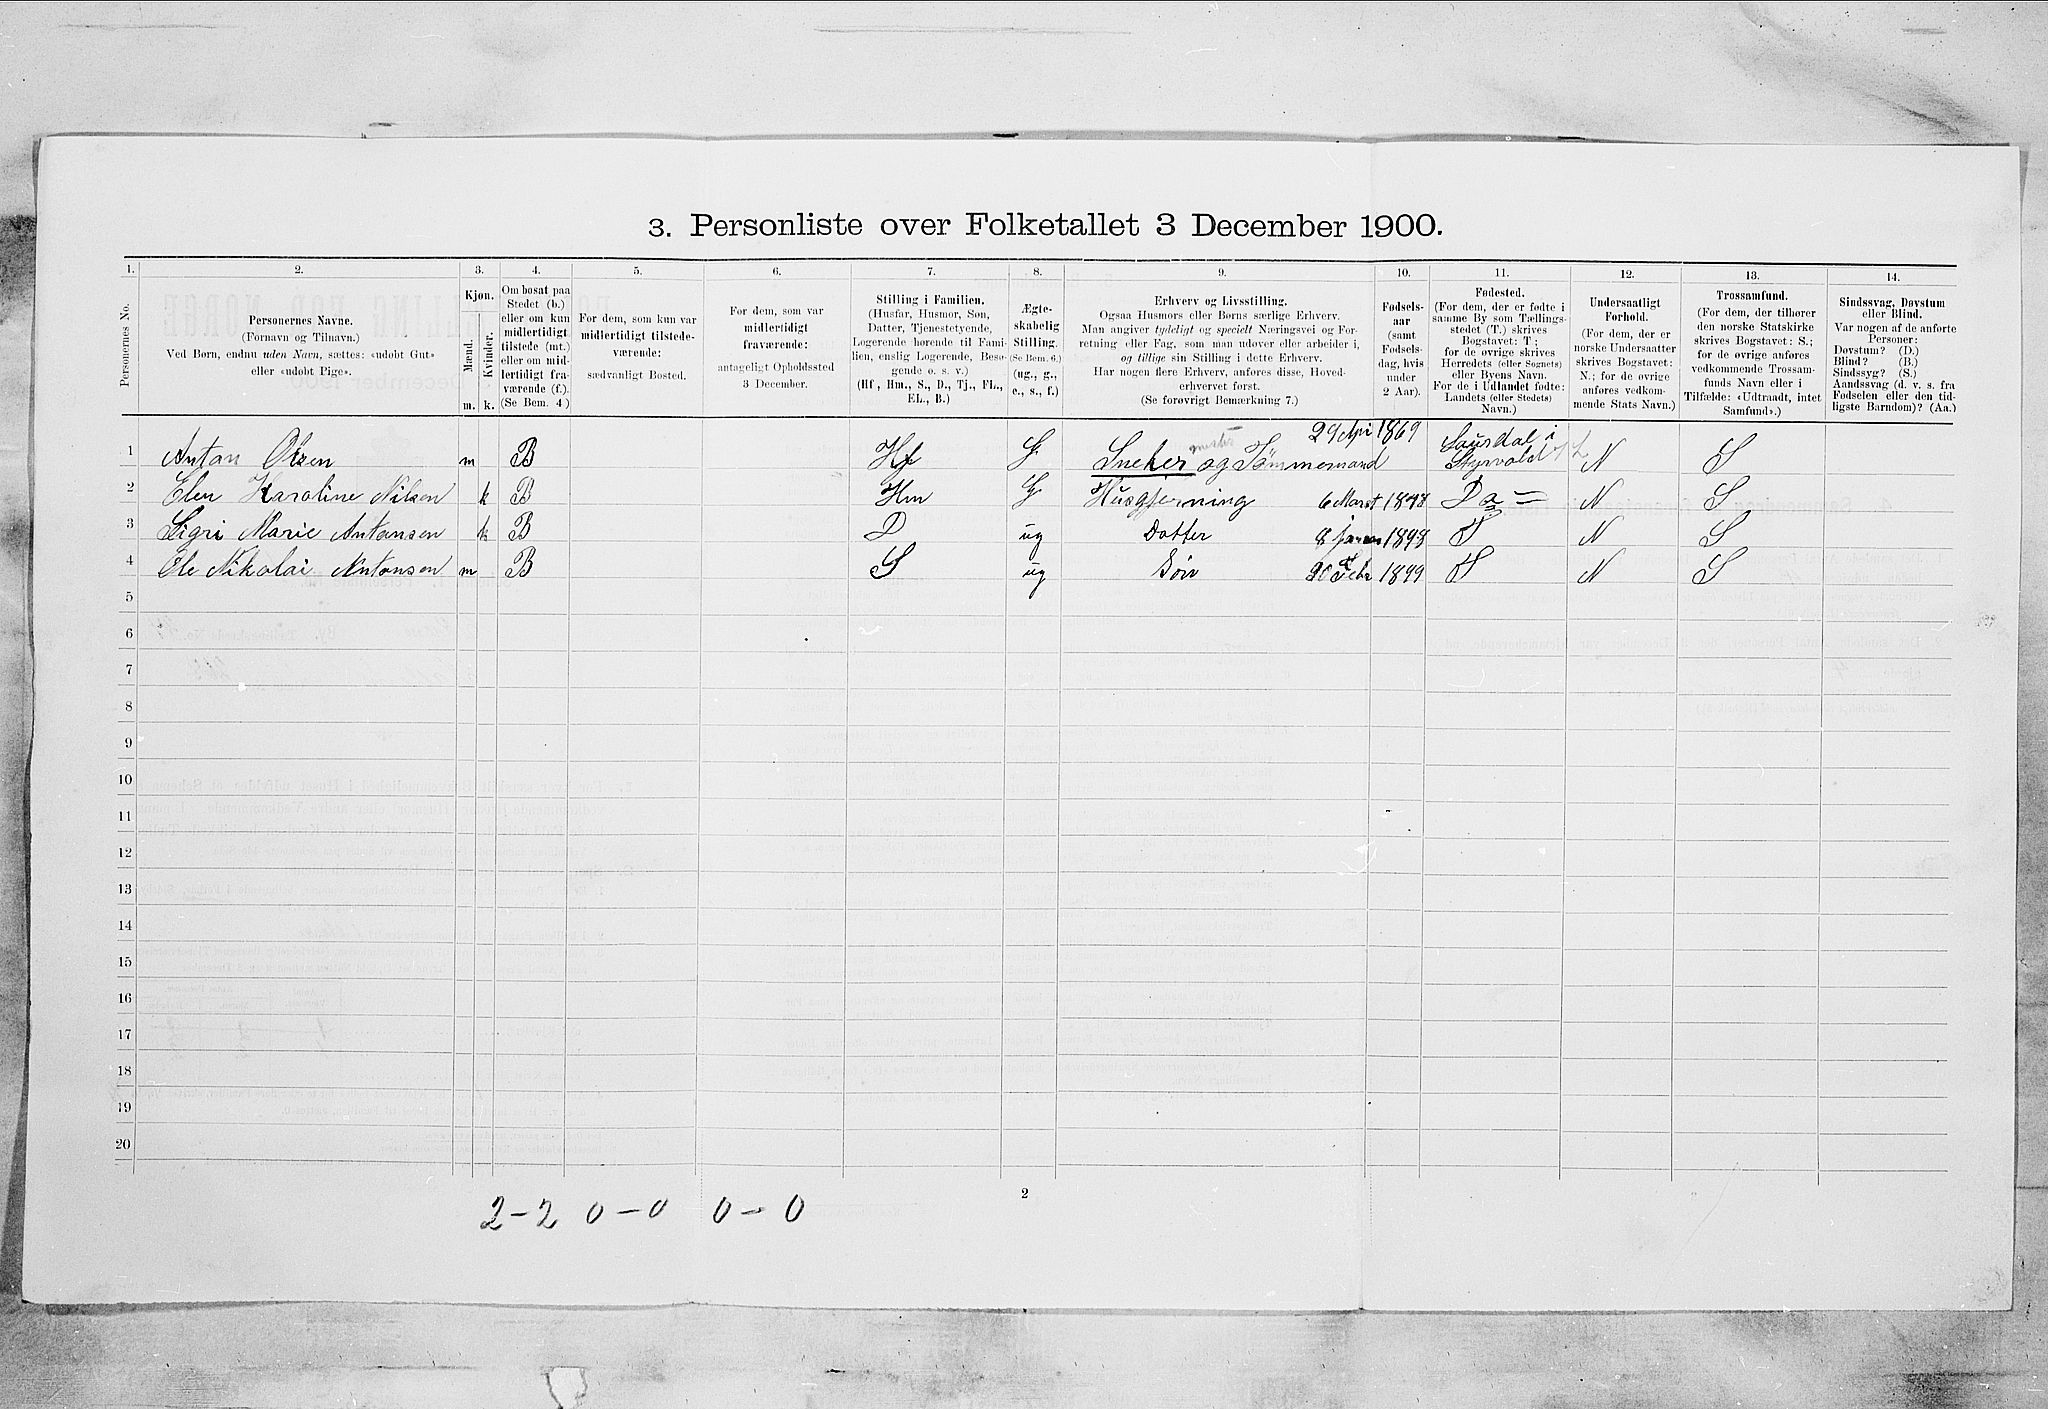 3. Personliste over Folketallet 3 December 1900.
1. 2. 3. 4. 5. 6. 7. 8. 9. 10. 11. 12. 13. 14.
Personernes No.
Personernes Navne.
(Fornavn og Tilnavn.)
Ved Børn, endnu uden Navn, sættes: «udøbt Gut»
eller «udøbt Pige».
Kjøn.
Mænd.
Kvinder.
m. k.
Om bosat paa
Stedet (b.)
eller om kun
midlertidigt
tilstede (mt.)
eller om mid-
lertidigt fra-
værende (f.).
(Se Bem. 4)
For dem, som kun var
midlertidigt tilstede-
værende:
sædvanligt Bosted.
For dem, som var
midlertidigt
fraværende:
antageligt Opholdssted
3 December.
Stilling i Familien.
(Husfar, Husmor, Søn,
Datter, Tjenestetyende,
Logerende hørende til Fami-
lien, enslig Logerende, Besø-
gende o. s. v.)
(Hf., Hm., S., D., Tj., FL.,
EL., B.)
Ægte-
skabelig
Stilling.
(Se Bem. 6.)
(ug., g.,
e., s., f.)
Erhverv og Livsstilling.
Ogsaa Husmors eller Børns særlige Erhverv.
Man angiver tydeligt og specielt Næringsvei og For-
retning eller Fag, som man udøver eller arbeider i,
og tillige sin Stilling i dette Erhverv.
Har nogen flere Erhverv, anføres disse, Hoved-
erhvervet først.
(Se forøvrigt Bemærkning 7.)
Fødsels-
aar
(samt
Fødsels-
dag, hvis
under
2 Aar).
Fødested.
(For dem, der er fødte i
samme By som Tællings-
stedet (T.) skrives
Bogstavet: T;
for de øvrige skrives
Herredets (eller Sognets)
eller Byens Navn.
For de i Udlandet fødte:
Landets (eller Stedets)
Navn.)
Undersaatligt
Forhold.
(For dem, der er
norske Undersaatter
skrives Bogstavet:
N.; for de øvrige
anføres vedkom-
mende Stats Navn.)
Trossamfund.
(For dem, der tilhører
den norske Statskirke
skrives Bogstavet: S.;
for de øvrige anføres
vedkommende Trossam-
funds Navn eller i
Tilfælde: «Udtraadt, intet
Samfund».)
Sindssvag, Døvstum
eller Blind.
Var nogen af de anførte
Personer:
Døvstum? (D.)
Blind? (B.)
Sindssyg? (S.)
Aandssvag (d. v. s. fra
Fødselen eller den tid-
ligste Barndom)? (Aa.)
1 Antan Olsen m B Hf G Sneker og Tømmermand 29 Apri 1869 N S
2 Elen Karoline Nilsen k B Hm G Husgjerning 6 Marst Da N S
3 Sigri Marie Antonsen k B D ug Datter 8 1898 T N S
4 Ole Nikolai Antonsen m B S ug Søn 20 Febr 1899 T N S
5
6
7
8
9
10
11
12
13
14
15
16
17
18
19
20
2-2 0-0 0-0
2